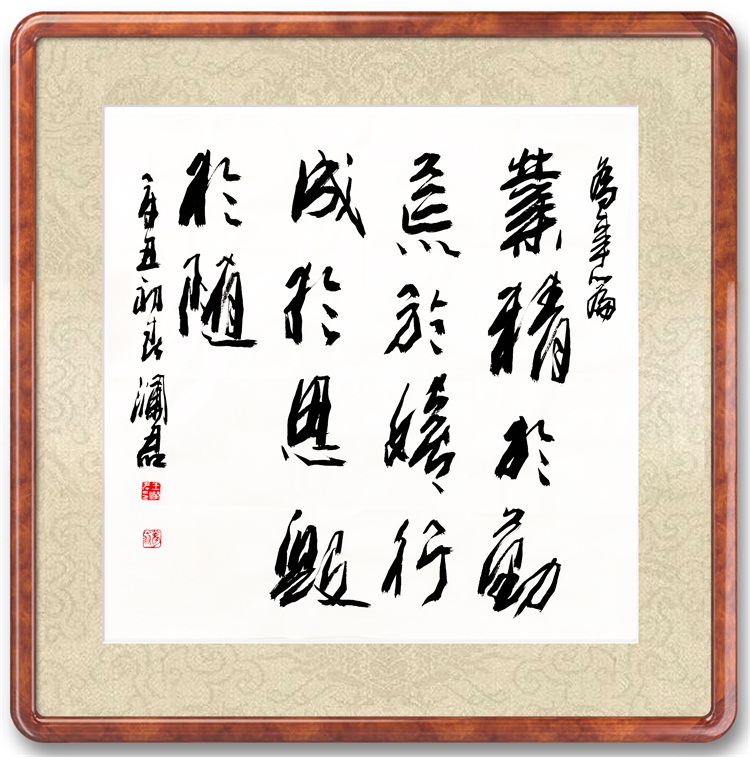 業精於勤
荒於嬉行
成於思毀
於隨
辛丑初春瀾